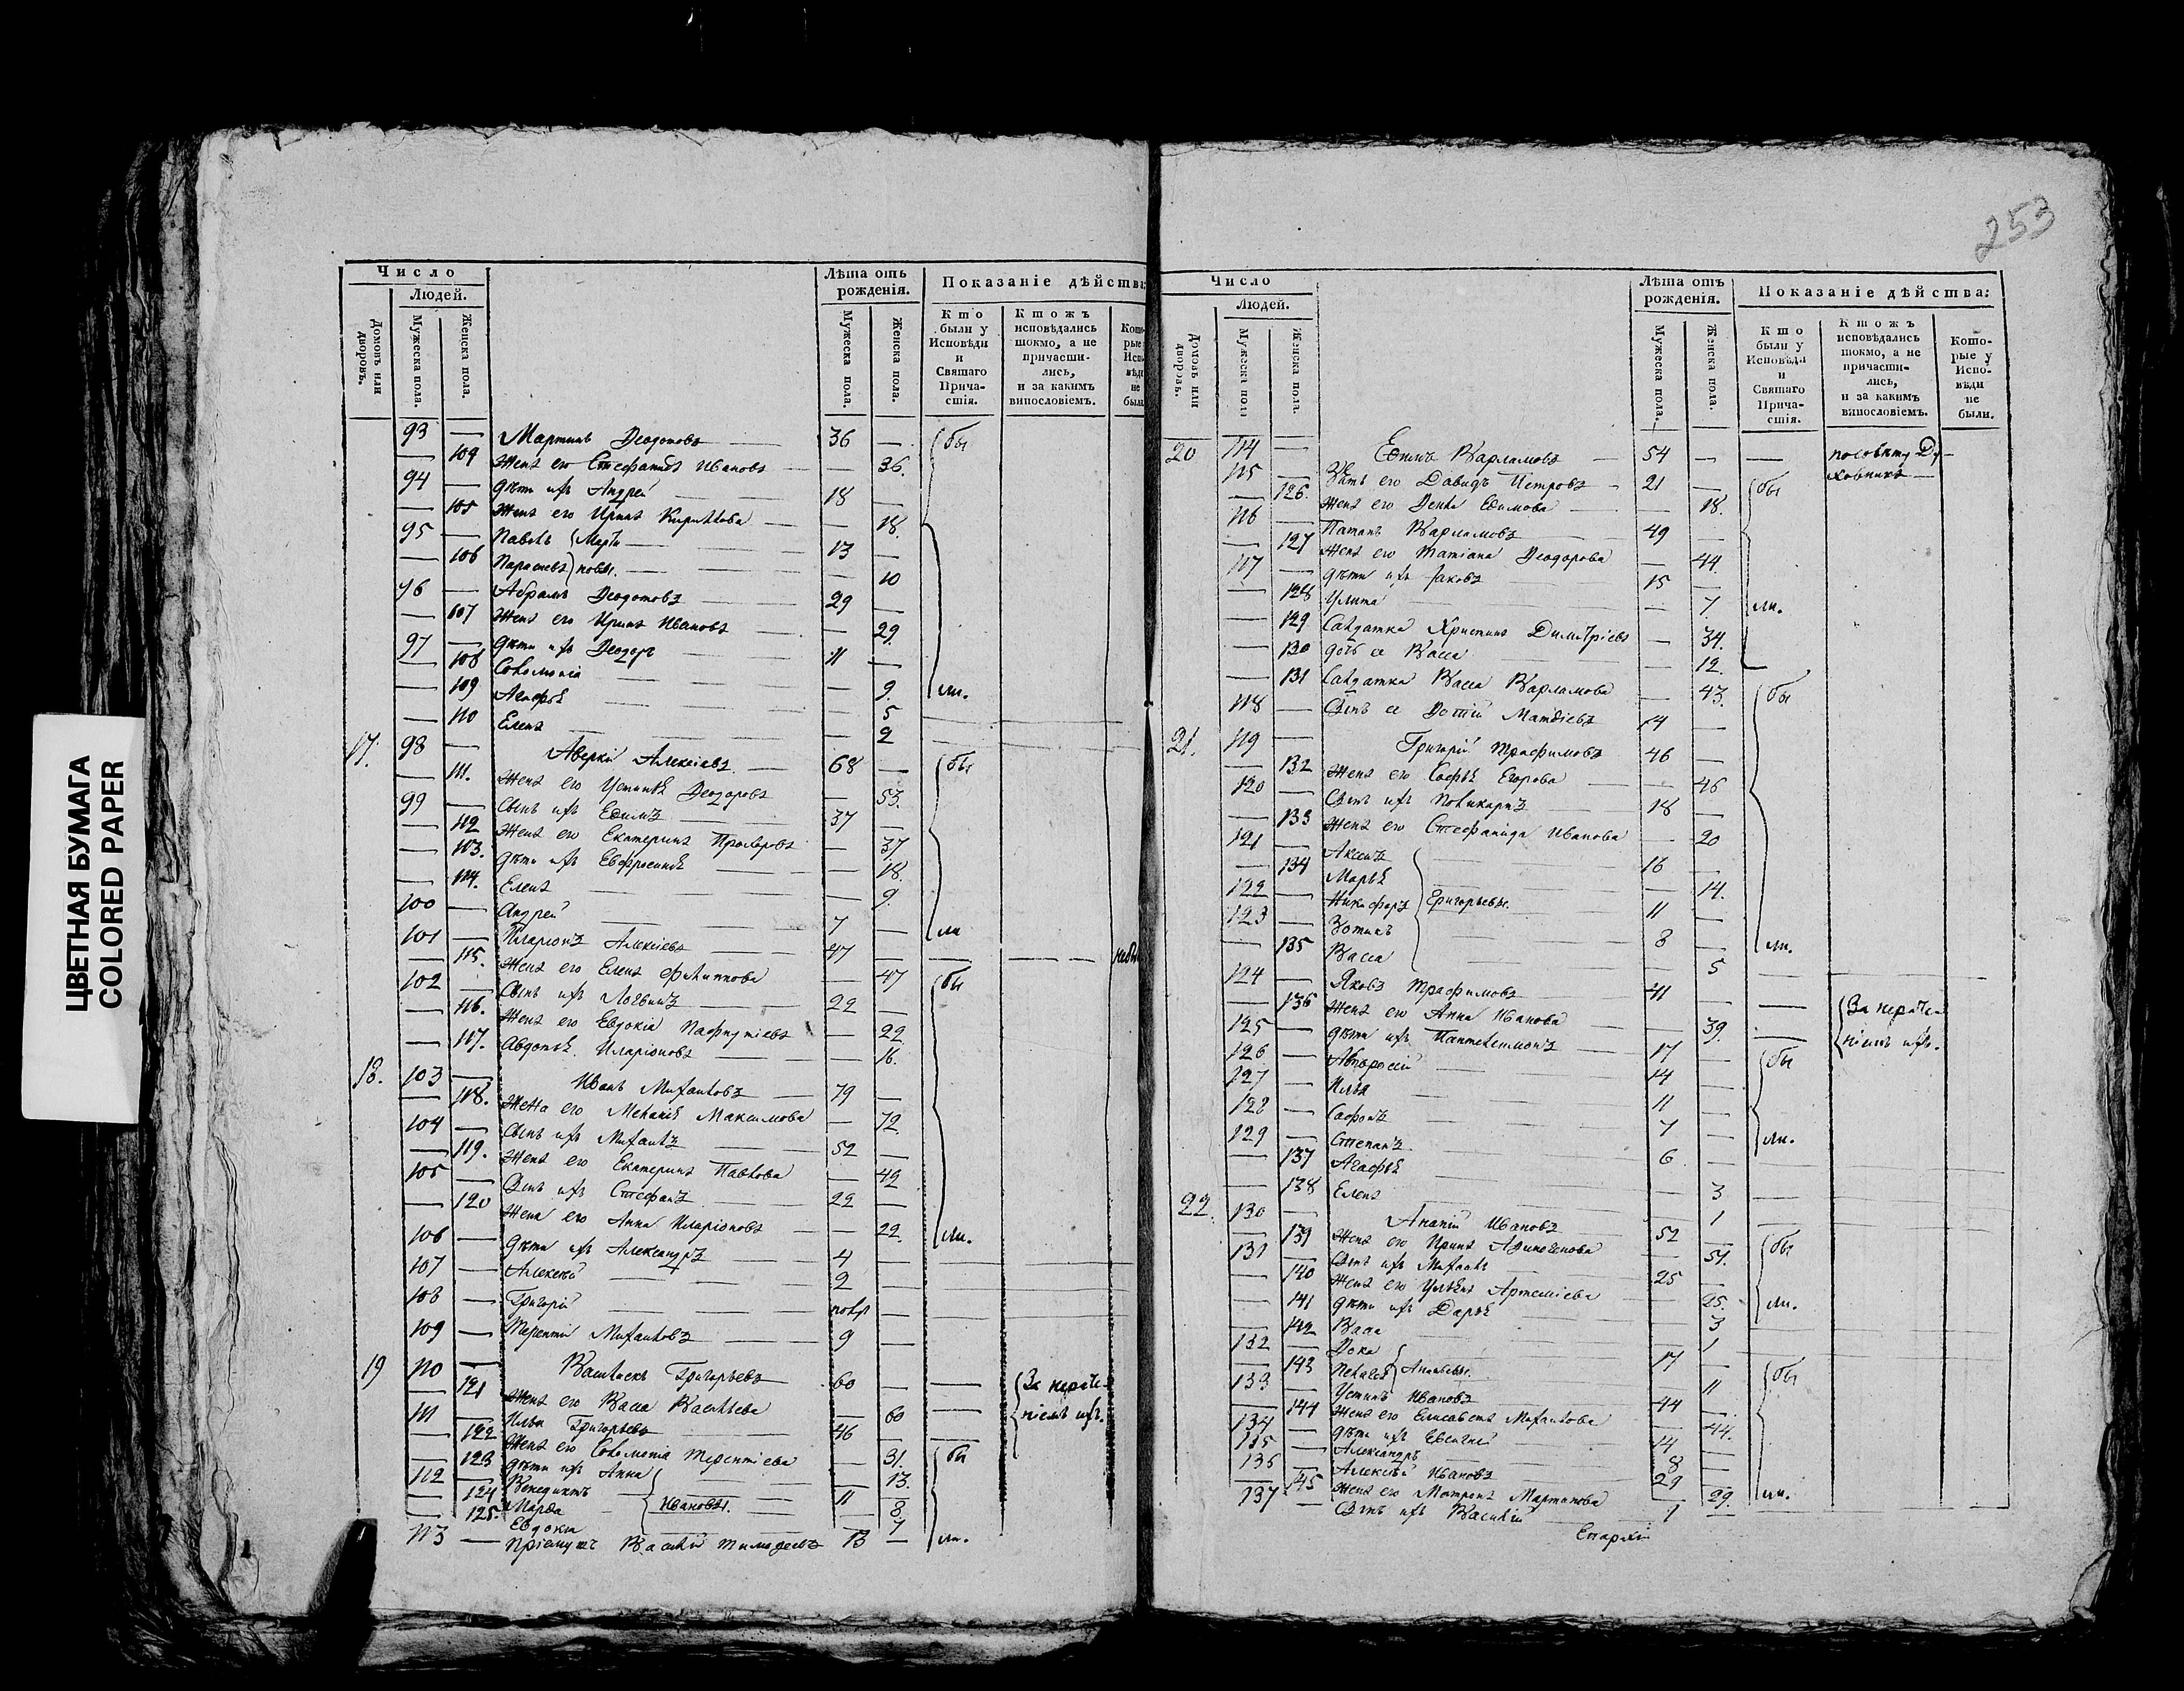 ЦВЕТНАЯ БУМАГА
COLORED PAPER
253
Число
Людей.
Домовъ или дворовъ.
Мужеска пола.
Женска пола.
Лѣта отъ рожденія.
Мужеска пола.
Женска пола.
Показаніе дѣйства:
Кто были у Исповѣди и Святаго Причастія.
Ктожъ исповѣдались токмо, а не причастились, и за какимъ винословіемъ.
93 — Мартинъ Ѳеодотовъ — 36 — бы
— 104 Жена его Стефанида Иванова — — 36.
94 — дѣти ихъ Андрей — 18 —
— 105 Жена его Ирина Кирилова — — 18.
95 — Павелъ Марти — 13 —
— 106 Парасцева новы. — — 10
96 — Абрамъ Ѳеодотовъ — 29 —
— 107 Жена его Ирина Иванова — — 29.
97 — дѣти ихъ Ѳеодоръ — 11 —
— 108 Соломонія — — 9. ли.
— 109 Агафья — — 5
— 110 Елена — — 2
17. 98 — Аверкій Алексіевъ. — 68 — бы
— 111. Жена его Устинья Ѳеодорова — 53.
99 — Сынъ ихъ Евѳимъ — 37 —
— 112 Жена его Екатерина — 37.
— 113. дѣти ихъ Евфросинья — — 18.
— 114. Елена — — 9.
100 — Андрей — 7 — ли
101 — Иларіонъ Алексіевъ — 47 —
— 115. Жена его Елена Филиппова — 47 бы
102 — Сынъ ихъ Логвинъ — 22 —
— 116. Жена его Евдокіа Пафнутіева — 22
— 117. Авдотья Иларіонова — — 16.
18. 103 — Иванъ Михайловъ — 79 —
— 118. Жена его Меланья Максимова — 72.
104 — Сынъ ихъ Михаилъ — 52 —
— 119. Жена его Екатерина Павлова — 42
105 — Сынъ ихъ Стефанъ — 22 —
— 120 Жена его Анна Иларіонова — — 22. ли.
106 — дѣти ихъ Александръ — 4 —
107 — Алексѣй — 2 —
108 — Григорій — полг —
109 — Терентій Михайловъ — 9 —
19 110 — Григорьевъ 60 — — За нераче-
— 121 Жена его Васса Васильева — 60 — ніемъ ихъ.
111 — Илья Григорьевъ — 46 —
— 122 Жена его Соломонія Терентіева — 31. бы
— 123 дѣти ихъ Анна — 13.
112 — Венедиктъ — 11 —
— 124 Марѳа Ивановы. — 8
— 125. Евдокіа — 7
113 — Пріемышъ Василій Тимоѳеевъ 13 — ли.
Число
Людей.
Домовъ или дворовъ.
Мужеска пола
Женска пола.
Лѣта отъ рожденія.
Мужеска пола.
Женска пола.
Показаніе дѣйства:
Кто были у Исповѣди и Святаго Причастія.
Ктожъ исповѣдались токмо, а не причастились, и за какимъ винословіемъ.
Которые у Исповѣди не были.
20 114 — Евѳимъ Варламовъ — 54 — — посовѣту Ду-
115 — Зять его Давидъ Петровъ — 21 — бы ховника —
— 126. Жена его Ѳекла Евѳимова — — 18.
116 — Варламовъ 49 —
— 127 Жена его Татіана Ѳеодорова — 44.
117 — дѣти ихъ Іаковъ — 15 —
— 128 Улита — — 7. ли.
— 129 Салдатка Христина Димитріева — 34.
— 130 дочь ея Васса — 12.
— 131 Салдатка Васса Варламова — 43. бы
118 — Сынъ ея Матѳіевъ 14 —
21. 119 — Григорій Трофимовъ 46 —
— 132 Жена его Софья Егорова — — 46
120 — Сынъ ихъ Поликарпъ — 18 —
— 133 Жена его Стефанида Иванова — 20
121 — — 16 —
— 134 Марья — 14.
122 — Никифоръ Григорьевы. 11 —
123 — Зотикъ — 8 —
— 135 Васса — 5 ли.
124 — Яковъ Трофимовъ — 41 — — За нераче-
— 136 Жена его Анна Иванова — 39. — ніемъ ихъ.
125 — дѣти ихъ Пантелеимонъ — 17 — бы
126 — Амвросій — 14 —
127 — Илья — 11 —
128 — Сафонъ — 7 — ли.
129 — Степанъ — 6 —
— 137 Агафья — — 3 —
— 138 Елена — — 1
22. 130 — Ананій Ивановъ — 52 — бы
— 139 Жена его Ирина — 51.
131 — Сынъ ихъ Михаилъ — 25 —
— 140 Жена его Ульяна Артеміева — 25. ли.
— 141 дѣти ихъ Дарья — — 3
— 142 Васса — — 1
132 — Ѳока Ананьевы. 17 — бы
— 143 Пелагея — 11
133 — Устинъ Ивановъ — 44 —
— 144 Жена его Елисавета Михайлова — 44.
134 — дѣти ихъ Евсигней — 14 —
135 — Александръ — 8 —
136 — Алексѣй Ивановъ — 29 —
— 145 Жена его Матрона Мартинова — 29. ли.
137 — Сынъ ихъ Василій — 1 —
Епархіи